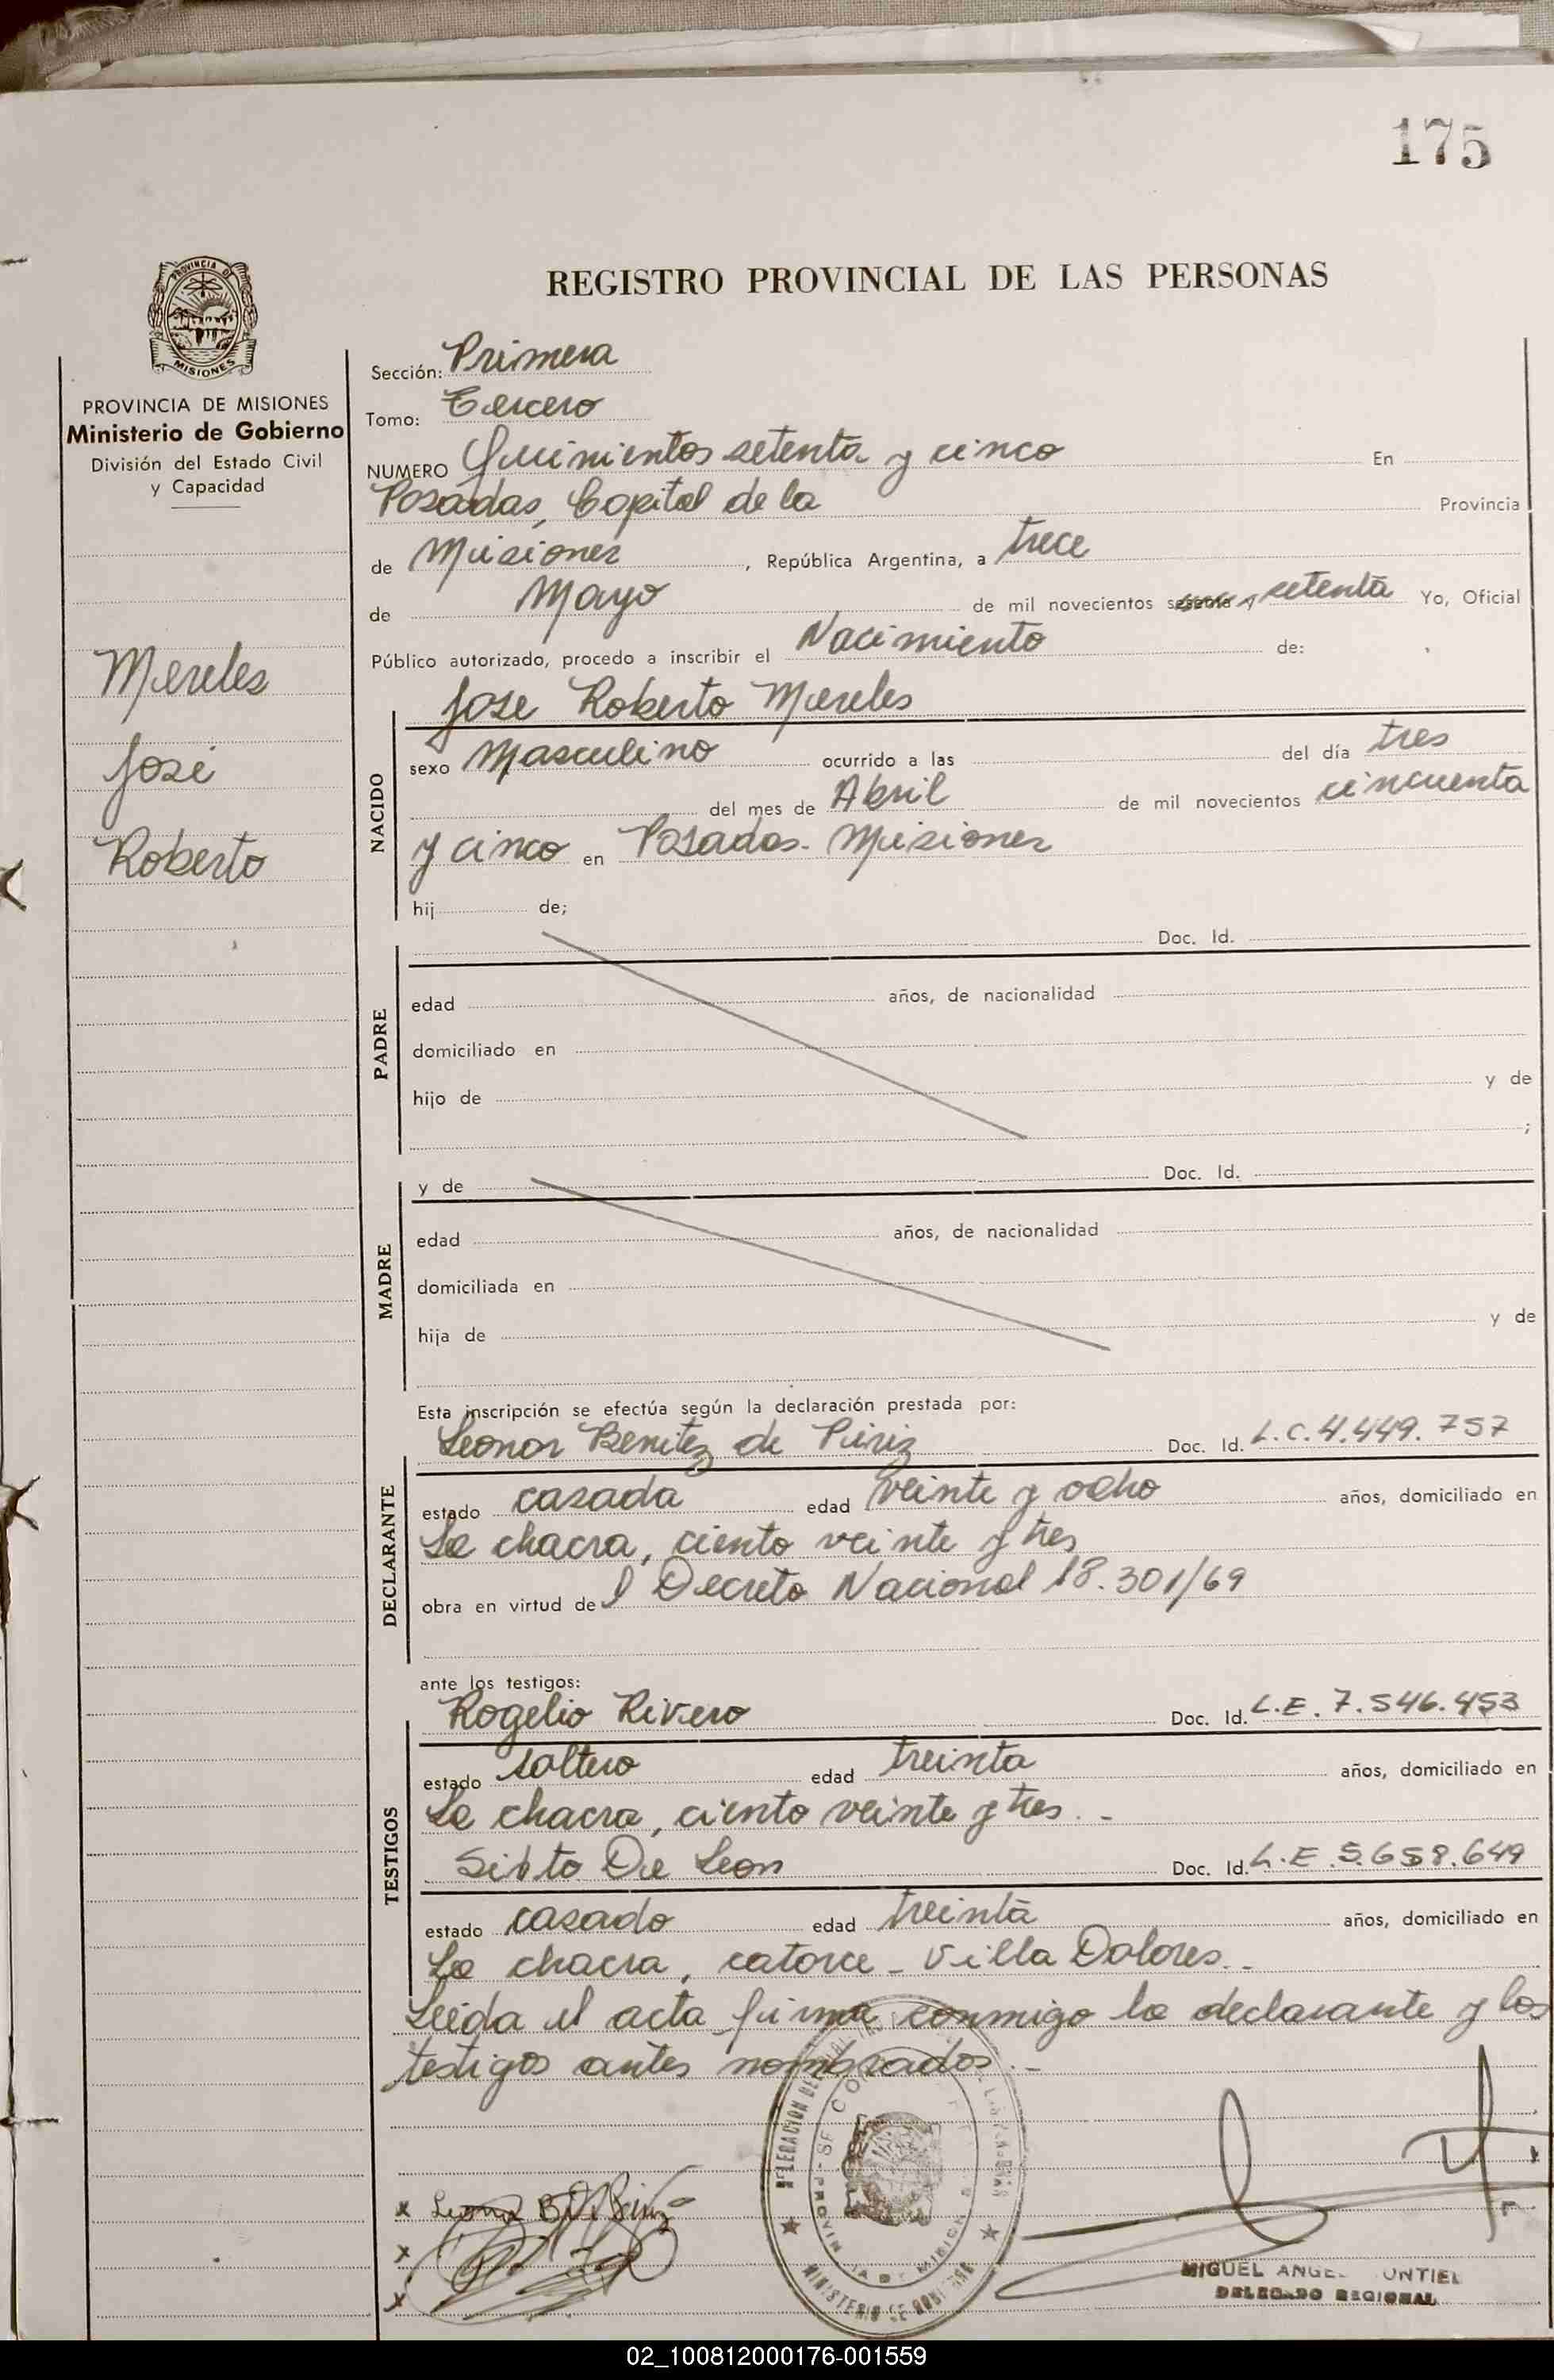 175
REGISTRO PROVINCIAL DE LAS PERSONAS
PROVINCIA DE MISIONES
PROVINCIA DE MISIONES
Ministerio de Gobierno
División del Estado Civil
y Capacidad
Mereles
José
Roberto
Sección: Primera
Tomo: Tercero
NUMERO Quinientos setenta y cinco En
Posadas, Capital de la Provincia
de Misiones, República Argentina, a trece
de Mayo de mil novecientos sesenta y setenta Yo, Oficial
Público autorizado, procedo a inscribir el Nacimiento de:
Jose Roberto Mereles
NACIDO
sexo Masculino ocurrido a las del día tres
del mes de Abril de mil novecientos cincuenta
y cinco en Posadas. Misiones
hij de;
Doc. Id.
PADRE
edad años, de nacionalidad
domiciliado en
hijo de y de
;
y de Doc. Id.
MADRE
edad años, de nacionalidad
domiciliada en
hija de y de
Esta inscripción se efectúa según la declaración prestada por:
Leonor Benitez de Piriz Doc. Id. L.C. 4.449.757
DECLARANTE
estado casada edad veinte y ocho años, domiciliado en
La chacra, ciento veinte y tres
obra en virtud de l Decreto Nacional 18.301/69
ante los testigos:
Rogelio Rivero Doc. Id. L.E. 7.546.453
TESTIGOS
estado soltero edad treinta años, domiciliado en
La chacra, ciento veinte y tres..-
Sixto De Leon Doc. Id. L.E. 5.658.649
estado casado edad treinta años, domiciliado en
La chacra, catorce - Villa Dolores..-
Leida el acta firma conmigo la declarante y los
testigos antes nombrados.-
MINISTERIO DE GOBIERNO
MIGUEL ANGEL
DELEGADO REGIONAL
02_100812000176-001559